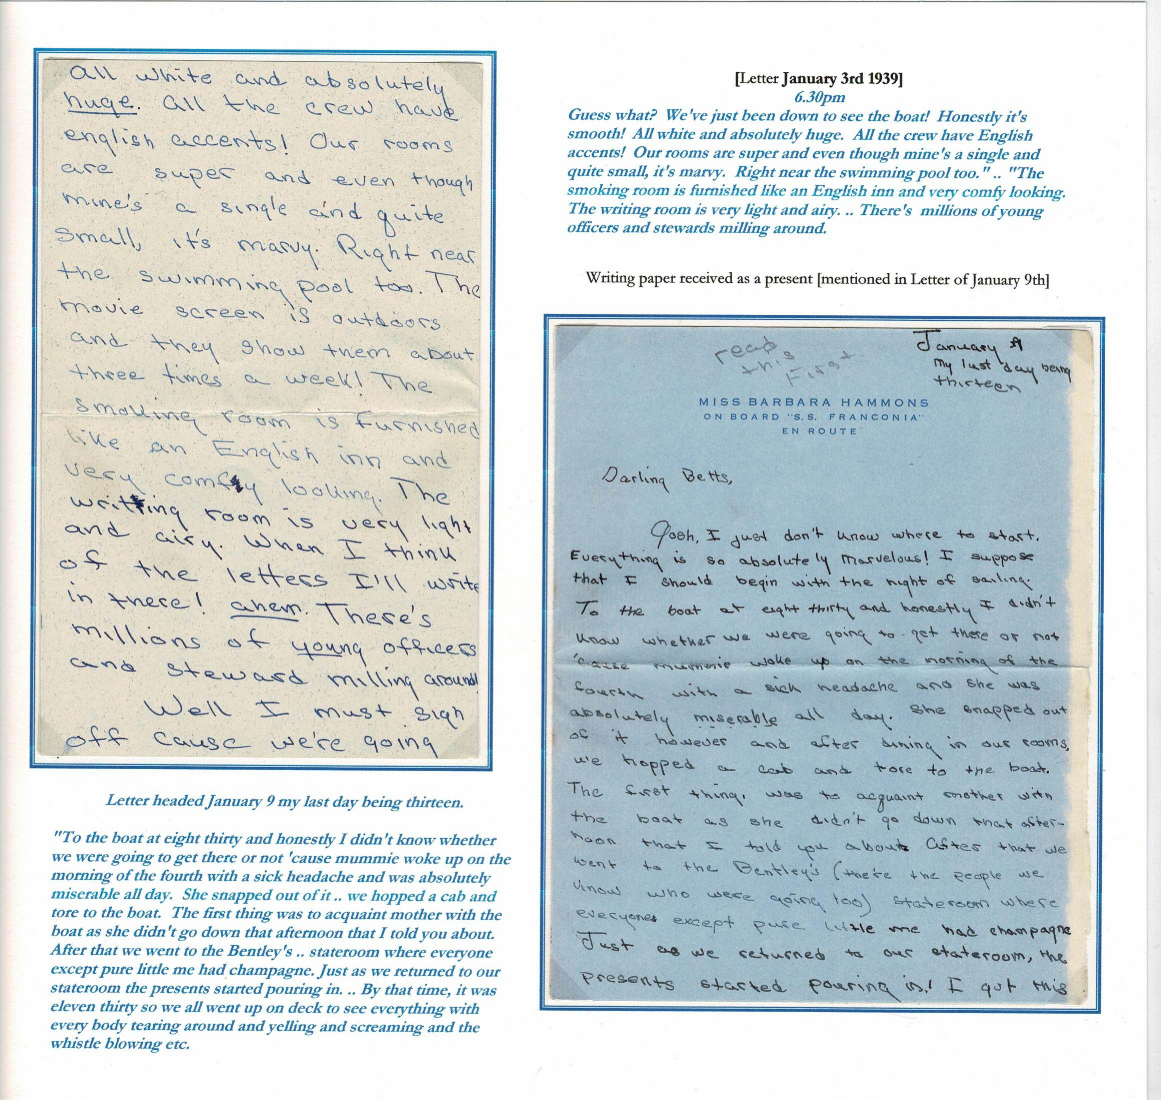 all white and absolutely
huge. All the crew have
english accents! Our rooms
are super and even though
mine's a single and quite
small, it's marvy. Right near
the swimming pool too. The
movie screen is outdoors
and they show them about
three times a week! The
smoking room is furnished
like an English inn and
very comfy looking. The
writing room is very light
and airy. When I think
of the letters I'll write
in there! ahem. There's
millions of young officers
and steward milling around!
Well I must sign
off cause we're going
Letter headed January 9 my last day being thirteen.
"To the boat at eight thirty and honestly I didn't know whether
we were going to get there or not 'cause mummie woke up on the
morning of the fourth with a sick headache and was absolutely
miserable all day. She snapped out of it .. we hopped a cab and
tore to the boat. The first thing was to acquaint mother with the
boat as she didn't go down that afternoon that I told you about.
After that we went to the Bentley's .. stateroom where everyone
except pure little me had champagne. Just as we returned to our
stateroom the presents started pouring in. .. By that time, it was
eleven thirty so we all went up on deck to see everything with
every body tearing around and yelling and screaming and the
whistle blowing etc.
[Letter January 3rd 1939]
6.30pm
Guess what? We've just been down to see the boat! Honestly it's
smooth! All white and absolutely huge. All the crew have English
accents! Our rooms are super and even though mine's a single and
quite small, it's marvy. Right near the swimming pool too. " .. "The
smoking room is furnished like an English inn and very comfy looking.
The writing room is very light and airy. .. There's millions of young
officers and stewards milling around.
Writing paper received as a present [mentioned in Letter of January 9th]
read
this
First
January 9
My last day being
thirteen
MISS BARBARA HAMMONS
ON BOARD "S.S. FRANCONIA"
EN ROUTE
Darling Betts,
Gosh, I just don't know where to start.
Everything is so absolutely marvelous! I suppose
that I should begin with the night of sailing.
To the boat at eight thirty and honestly I didn't
know whether we were going to get there or not
'cause mummie woke up on the morning of the
fourth with a sick headache and she was
absolutely miserable all day. She snapped out
of it however and after dining in our rooms,
we hopped a cab and tore to the boat.
The first thing, was to acquaint mother with
the boat as she didn't go down that after-
noon that I told you about. After that we
went to the Bentley's (there the people we
know who were going too) stateroom where
everyone except pure little me had champagne
Just as we returned to our stateroom, the
presents started pouring in! I got this